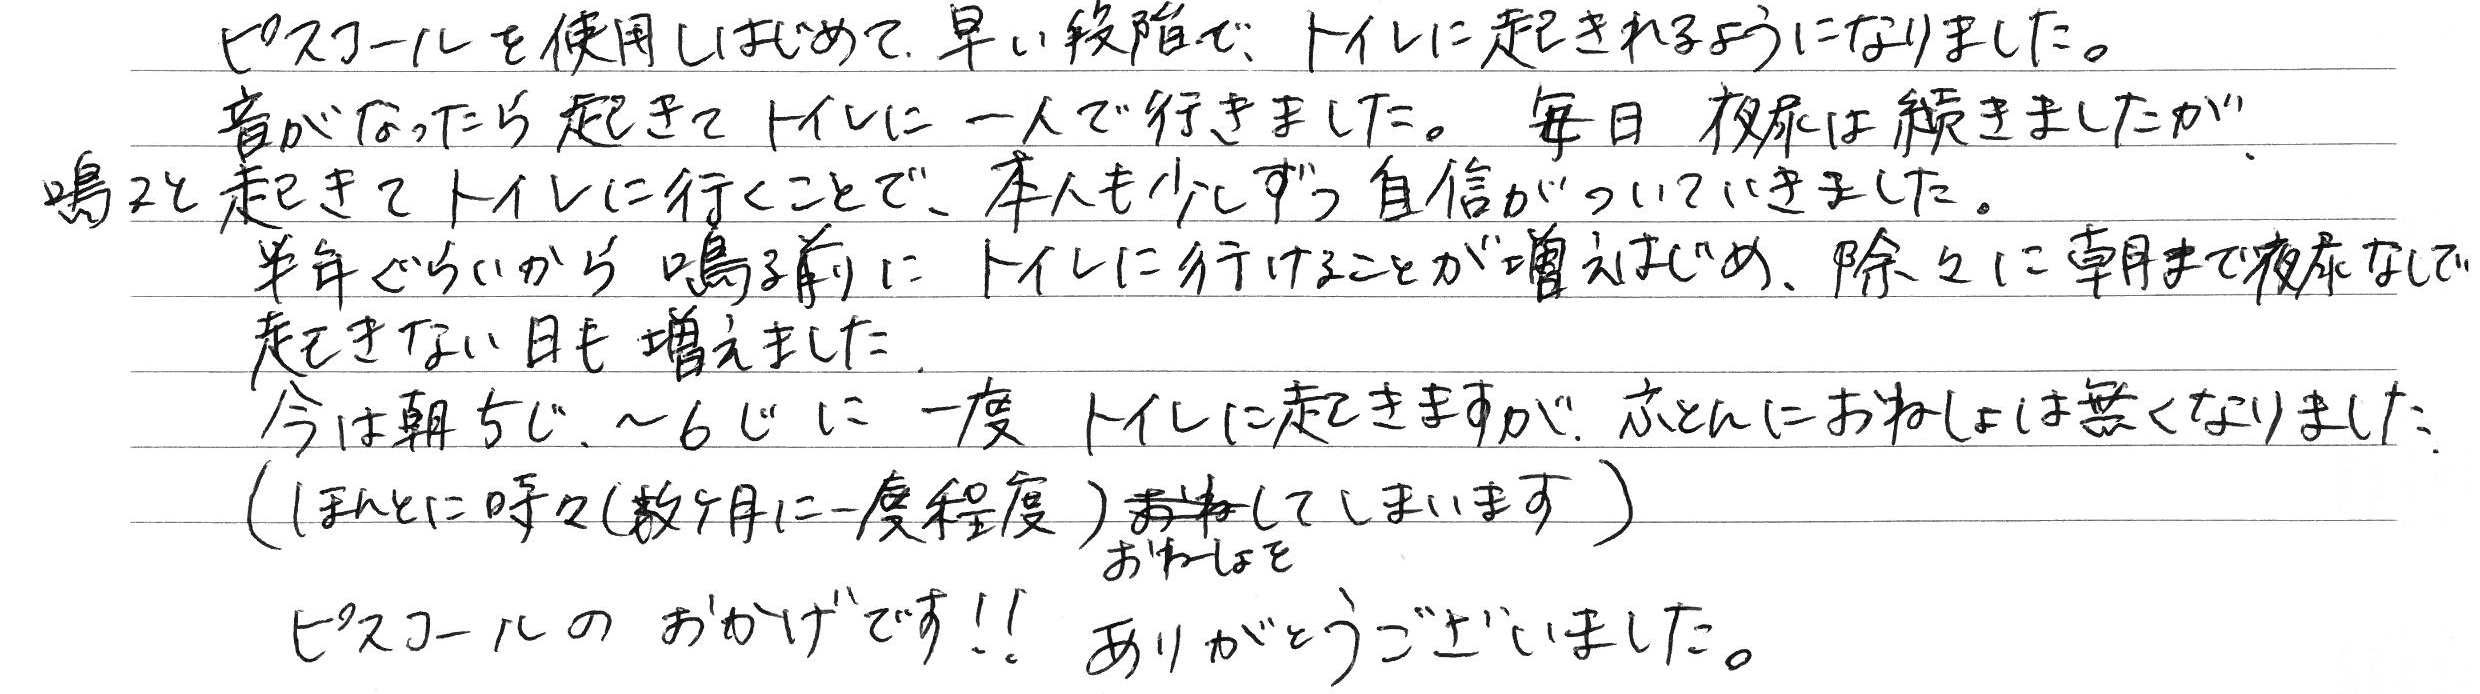 ピスコールを使用しはじめて、早い段階で、トイレに起きれるようになりました。
音がなったら起きてトイレに一人で行きました。 毎日 夜尿は続きましたが、
鳴ると起きてトイレに行くことで、本人も少しずつ自信がついていきました。
半年ぐらいから鳴る前にトイレに行けることが増えはじめ、除々に朝まで夜尿なしで
起きない日も増えました。
今は朝5じ、〜6じに 一度 トイレに起きますが、ふとんにおねしょは無くなりました。
(ほんとに時々(数ヶ月に一度程度)おねしてしまいます)
おねしょを
ピスコールのおかげです!! ありがとうございました。